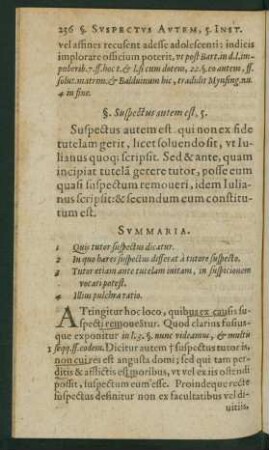 256 §. SVSPECTVS AVTEM, 5. INST.
vel assines recusent adesse adolescenti: iudicis
implorare officium poterit, vt post Bart. in d.l. im-
puberib. 7. ff. hoc t. & l. si cum dotem, 22. §. eo autem, ff.
solut. matrim. & Balduinum hic, tradidit Mynsing. nu.
4 in fine.
§. Suspectus autem est, 5.
Suspectus autem est qui non ex fide
tutelam gerit, licet soluendo sit, vt Iu-
lianus quoq; scripsit. Sed & ante, quam
incipiat tutelā gerere tutor, posse eum
quasi suspectum remoueri, idem Iulia-
nus scripsit: & secundum eum constitu-
tum est.
SVMMARIA.
1 Quis tutor suspectus dicatur.
2 In quo hæres suspectus differat à tutore suspecto.
3 Tutor etiam ante tutelam initam, in suspicionem
vocari potest.
4 Illius pulchra ratio.
ATtingitur hoc loco, quibus ex causis su-
specti remoueātur. Quod clarius fusius-
que exponitur in l. 3. §. nunc videamus, & multis
1 seqq. ff. eodem. Dicitur autem † suspectus tutor is,
non cui res est angusta domi; sed qui tam per-
ditis & afflictis est moribus, vt vel ex iis ostendi
possit, suspectum eum esse. Proinde que recte
suspectus definitur non ex facultatibus vel di-
uitiis,